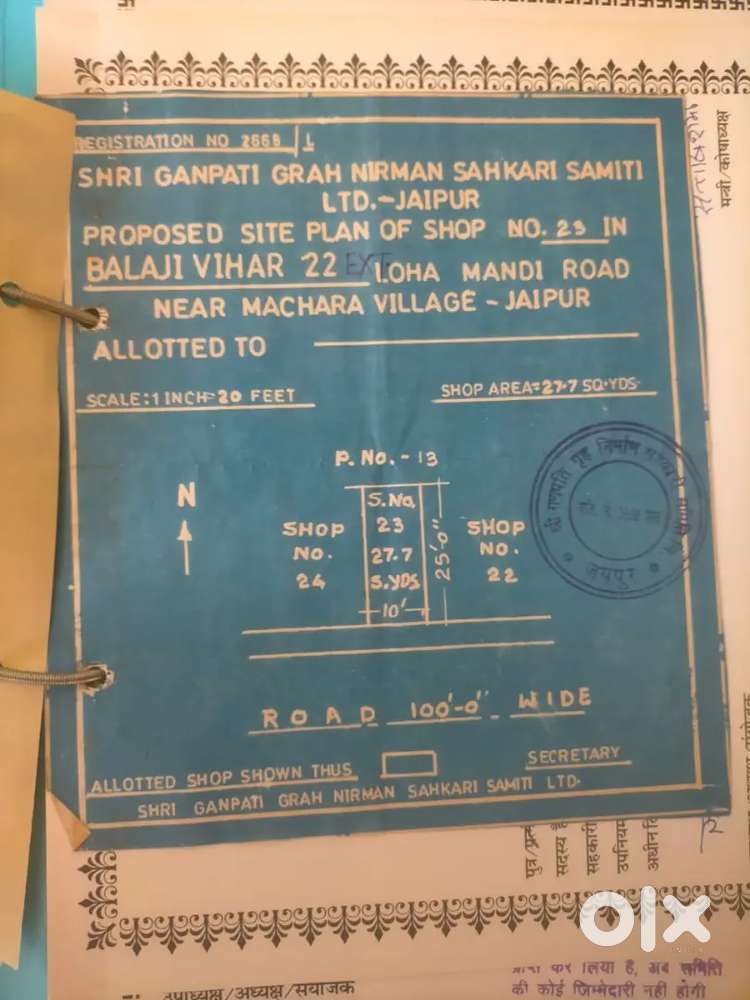 REGISTRATION NO 2668 L
SHRI GANPATI GRAH NIRMAN SAHKARI SAMITI
LTD.-JAIPUR
PROPOSED SITE PLAN OF SHOP NO. 23 IN
BALAJI VIHAR 22 EXT. LOHA MANDI ROAD
NEAR MACHARA VILLAGE - JAIPUR
ALLOTTED TO
SCALE:1 INCH=20 FEET
SHOP AREA=27.7 SQ.YDS.
P.NO.-13
N
SHOP NO. 24
S.No. 23 27.7 S.YDS
10'
25'-0"
SHOP NO. 22
ROAD 100'-0" WIDE
ALLOTTED SHOP SHOWN THUS
SECRETARY
SHRI GANPATI GRAH NIRMAN SAHKARI SAMITI LTD.
श्री गणपति गृह निर्माण
जयपुर
मंत्री/कोषाध्यक्ष
सदस्य
सहकारी
उपनियम
उपाध्यक्ष/अध्यक्ष/संयोजक
कर लिया है, अब समिति
की कोई जिम्मेदारी नहीं होगी
olx